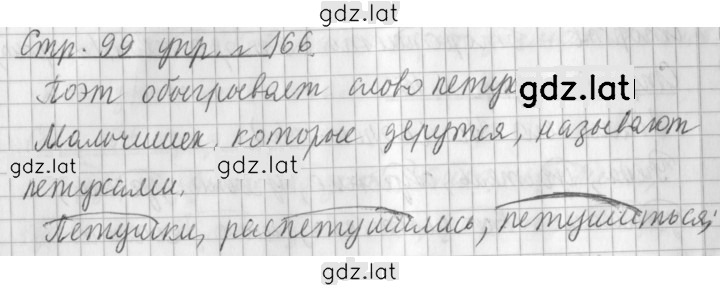 gdz.lat
Стр. 99 упр. № 166
Поэт обыгрывает слово петух
gdz.lat
Мальчишек, которые дерутся, называют
gdz.lat gdz.lat
петухами.
Петушки, распетушились, петушиться;
gdz.lat